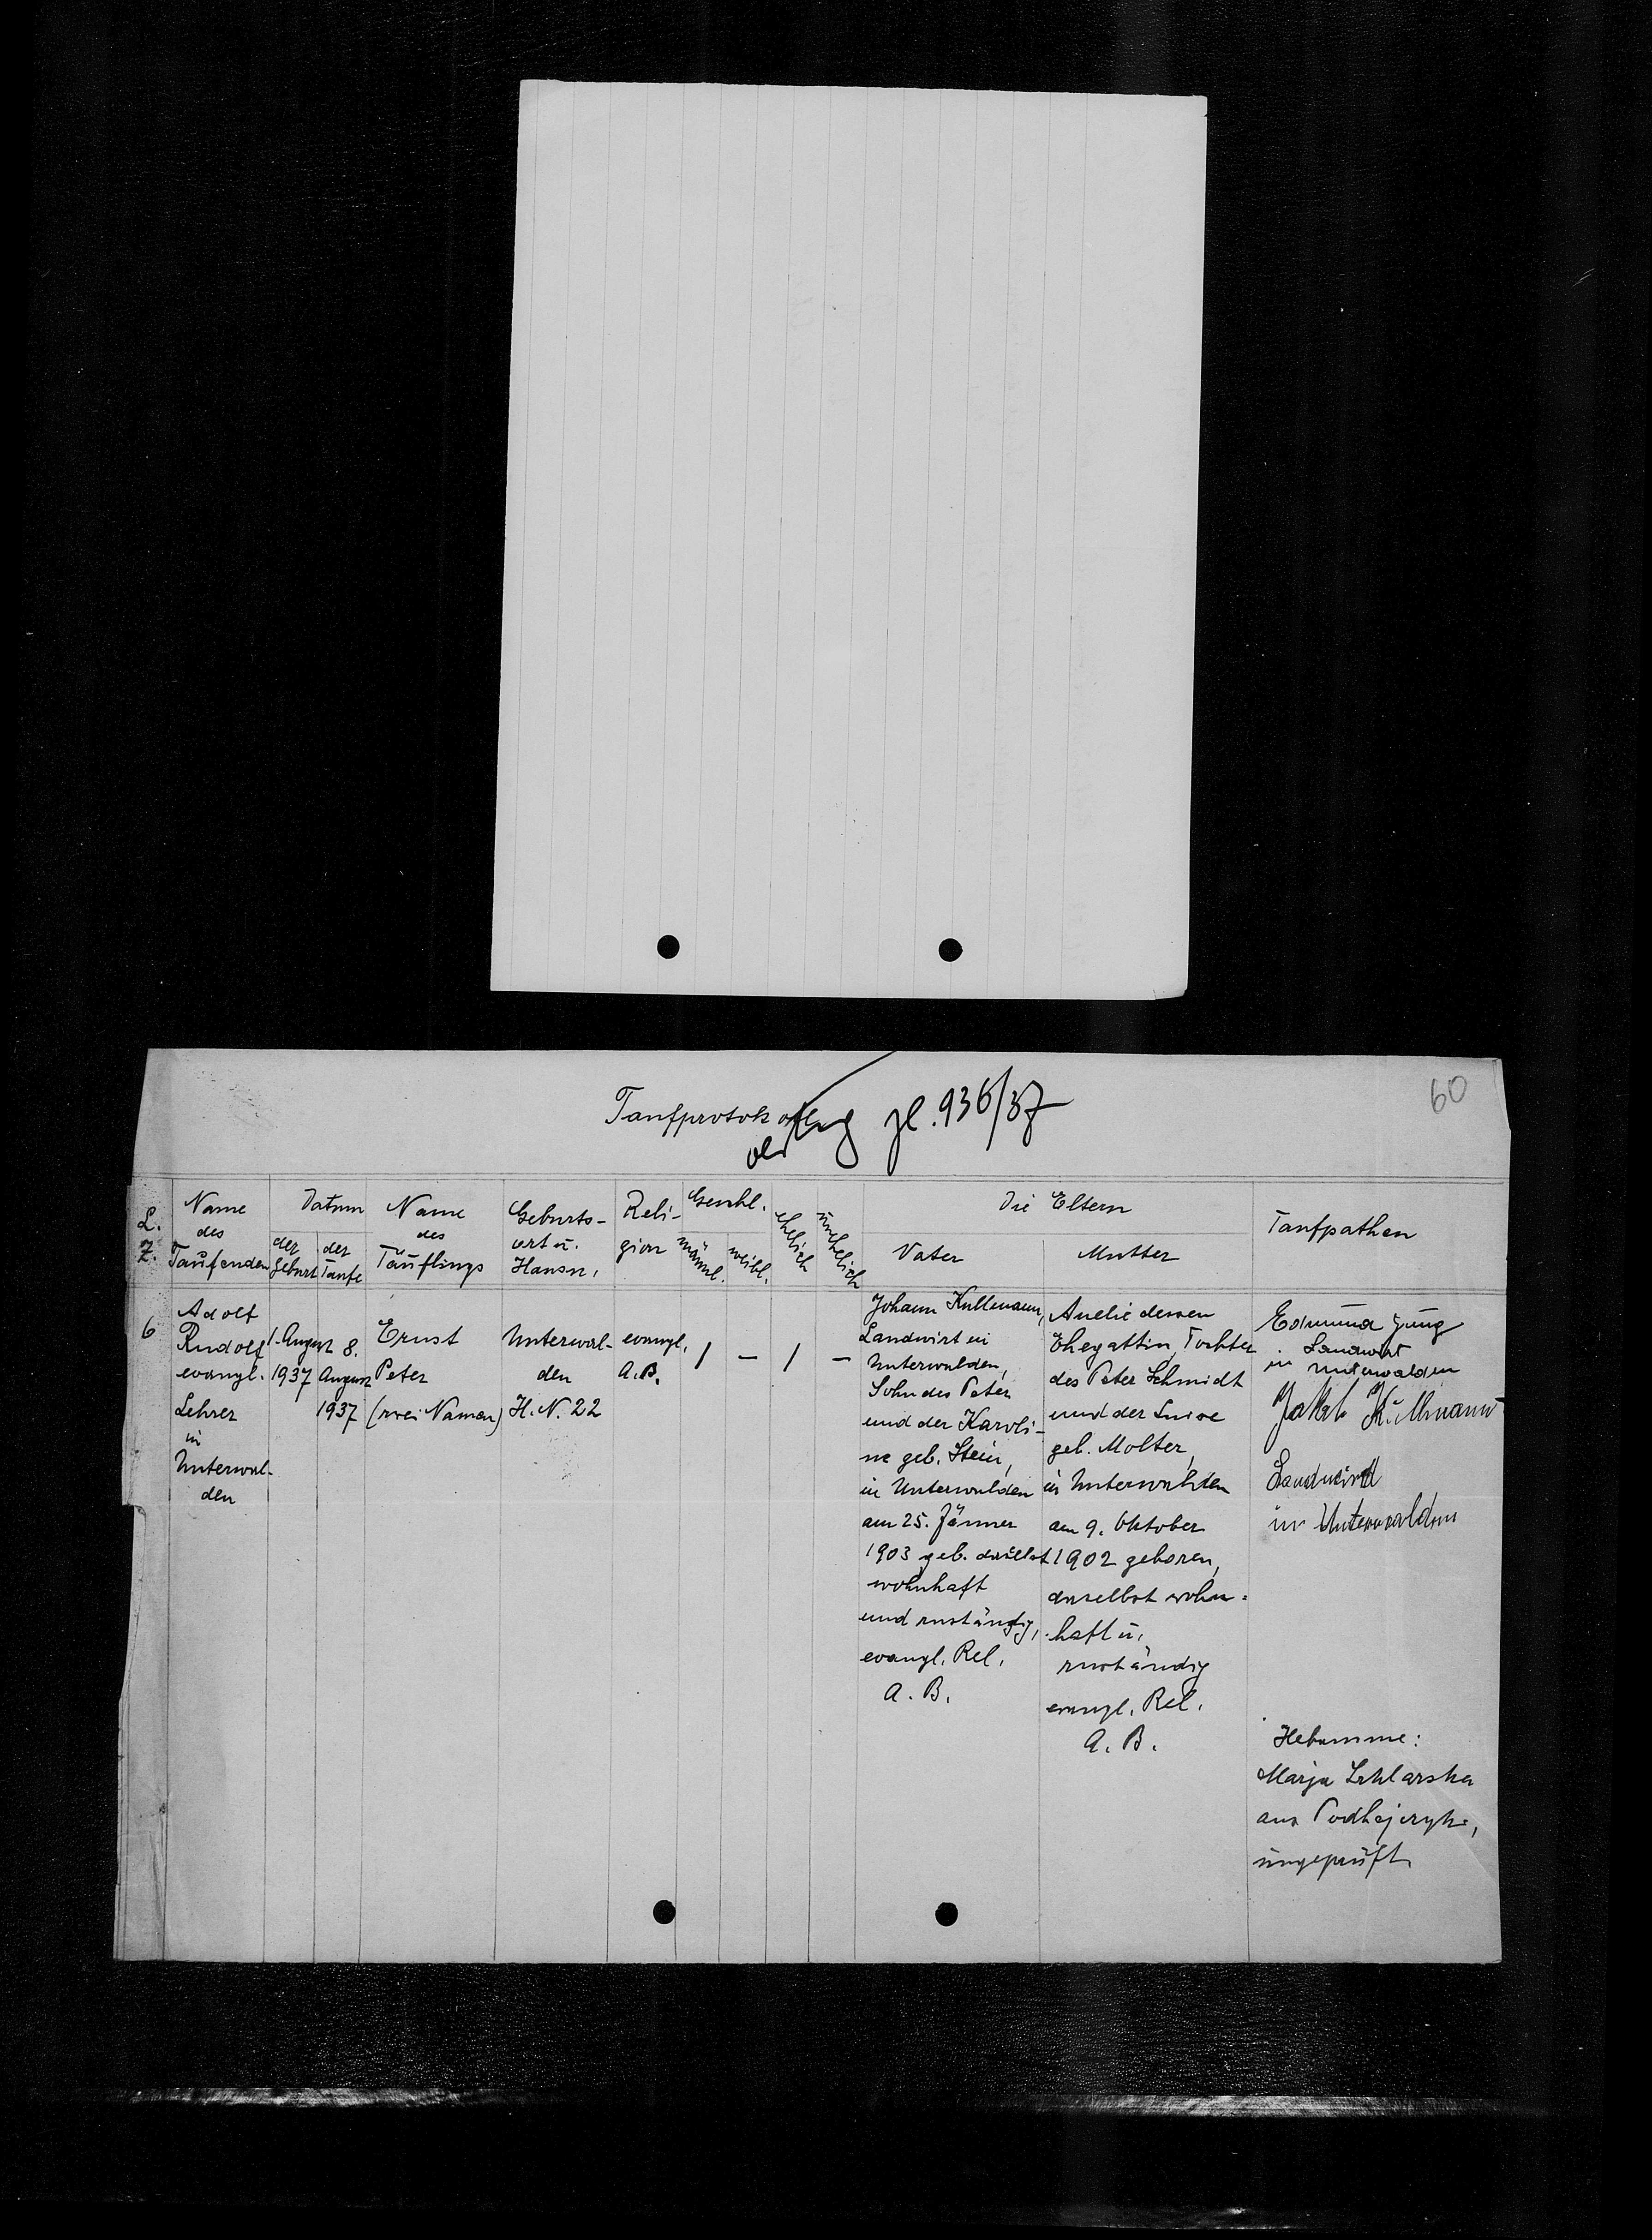 60
Taufprotokoll
zl. 936/37
L. Z.
Name des Taufenden
Datum
der Geburt
der Taufe
Name des Täuflings
Geburts-
ort u.
Hausn.
Reli-
gion
Geschl.
männl.
weibl.
ehelich
unehelich
Die Eltern
Vater
Mutter
Taufpathen
6
Adolf
Rudolf
evangl.
Lehrer
in
Unterwal-
den
1. August
1937
8.
August
1937
Ernst
Peter
(zwei Namen)
Unterwal-
den
H. N. 22
evangl.
A. B.
1
–
1
–
Johann Kullmann,
Landwirt in
Unterwalden,
Sohn des Peter
und der Karoli-
ne geb. Stein,
in Unterwalden
am 25. Jänner
1903 geb. daselbst
wohnhaft
und zuständig,
evangl. Rel.
A. B.
Amelie dessen
Ehegattin, Tochter
des Peter Schmidt
und der Luise
geb. Molter,
in Unterwalden
am 9. Oktober
1902 geboren,
daselbst wohn-
haft u.
zuständig
evangl. Rel.
A. B.
Edmund Jung
Landwirt
in Unterwalden
Jakob Kullmann
Landwird
in Unterwalden
Hebamme:
Marja
aus Podhajczyki,
ungeprüft